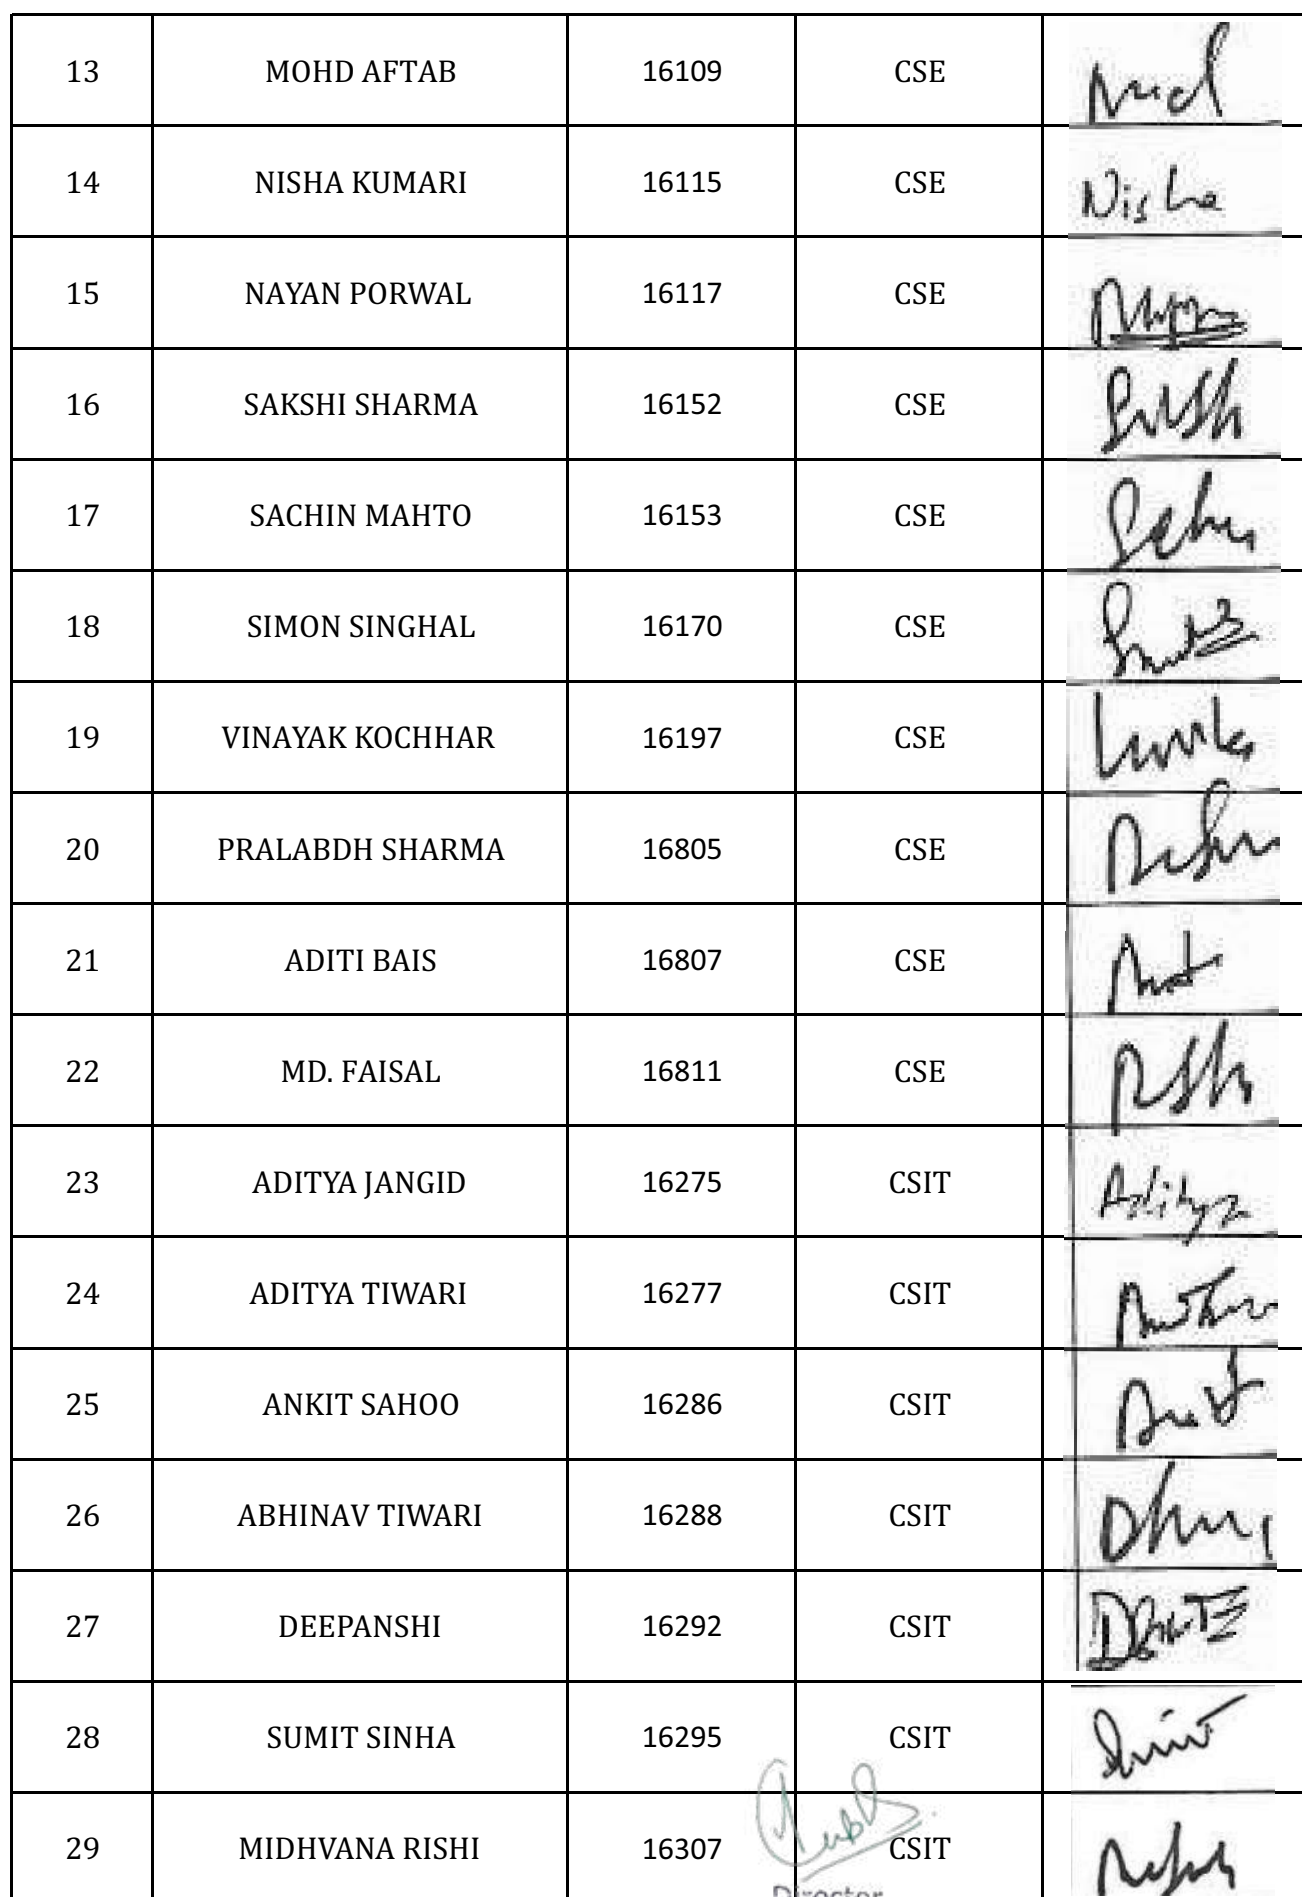 13 MOHD AFTAB 16109 CSE
14 NISHA KUMARI 16115 CSE Nisha
15 NAYAN PORWAL 16117 CSE
16 SAKSHI SHARMA 16152 CSE
17 SACHIN MAHTO 16153 CSE
18 SIMON SINGHAL 16170 CSE
19 VINAYAK KOCHHAR 16197 CSE
20 PRALABDH SHARMA 16805 CSE
21 ADITI BAIS 16807 CSE
22 MD. FAISAL 16811 CSE
23 ADITYA JANGID 16275 CSIT Aditya
24 ADITYA TIWARI 16277 CSIT
25 ANKIT SAHOO 16286 CSIT
26 ABHINAV TIWARI 16288 CSIT
27 DEEPANSHI 16292 CSIT
28 SUMIT SINHA 16295 CSIT
29 MIDHVANA RISHI 16307 CSIT
Director